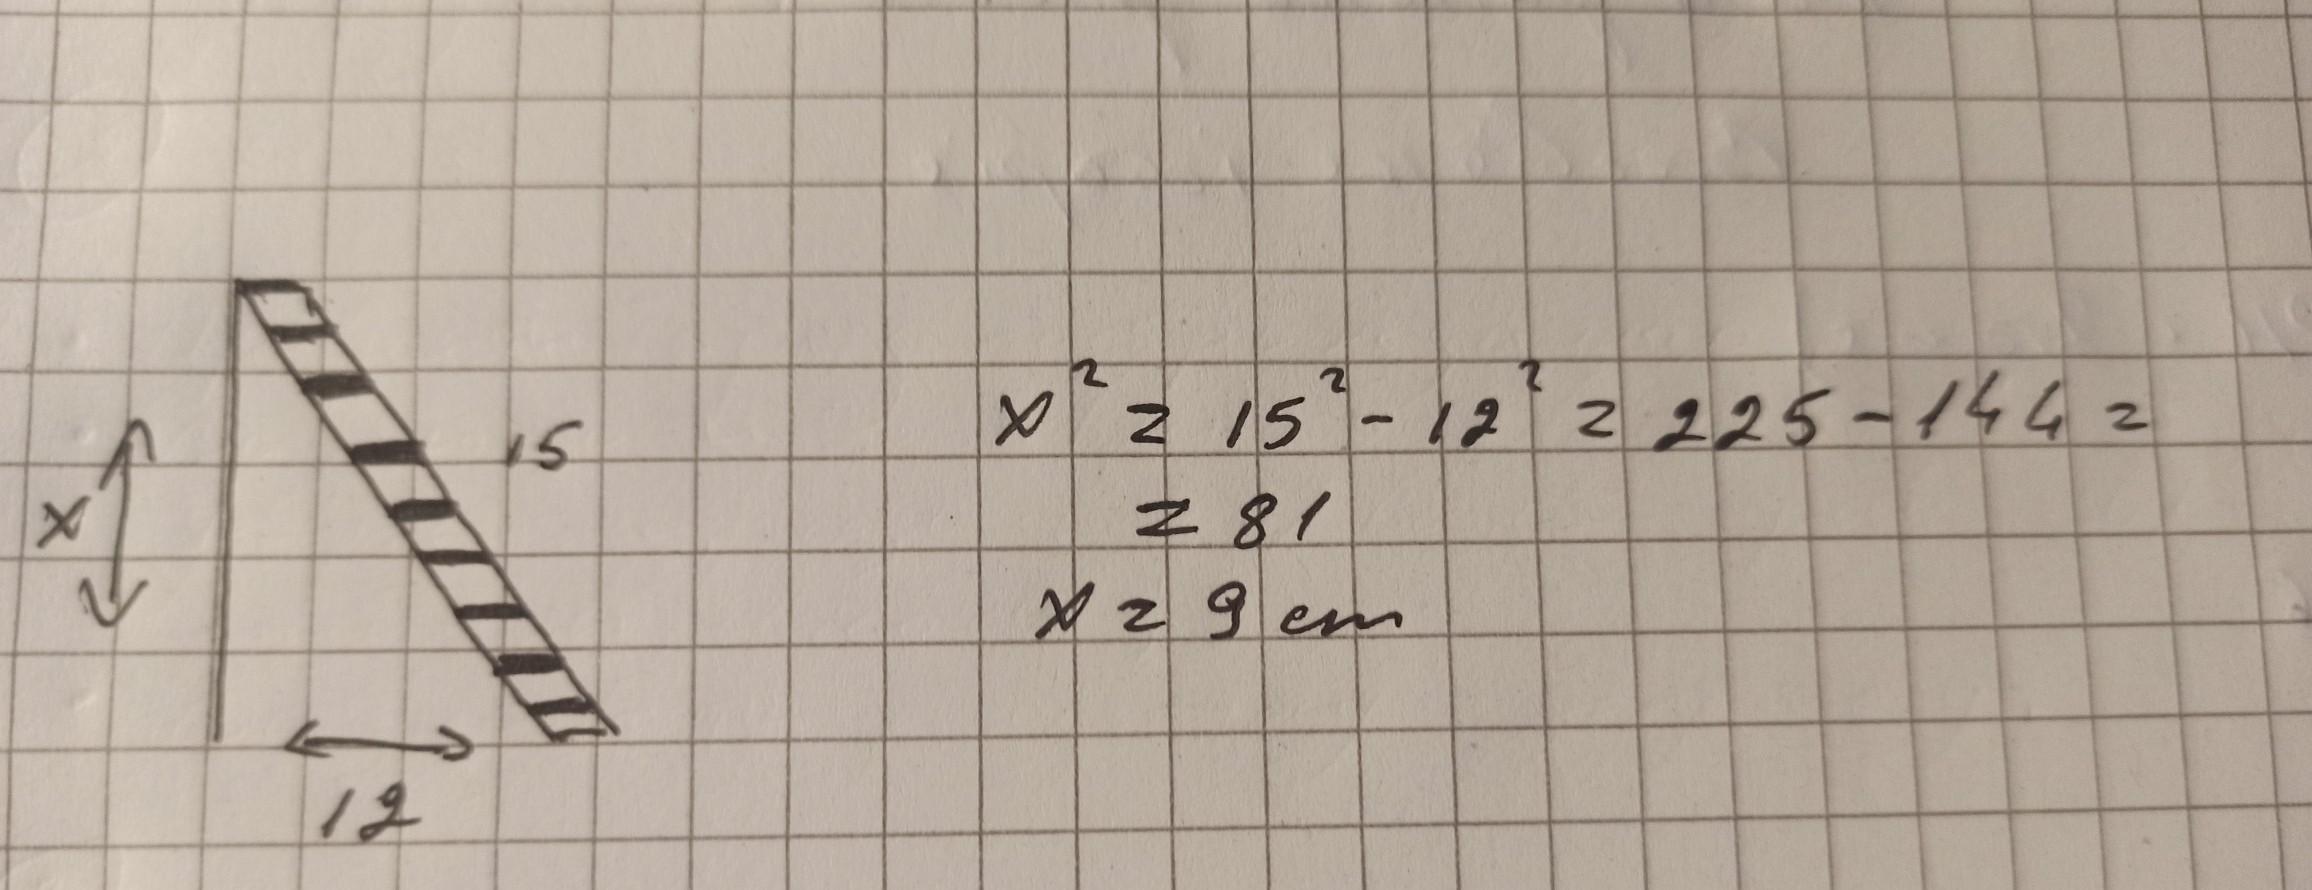 x
15
12
x² = 15² - 12² = 225 - 144 =
= 81
x = 9 cm